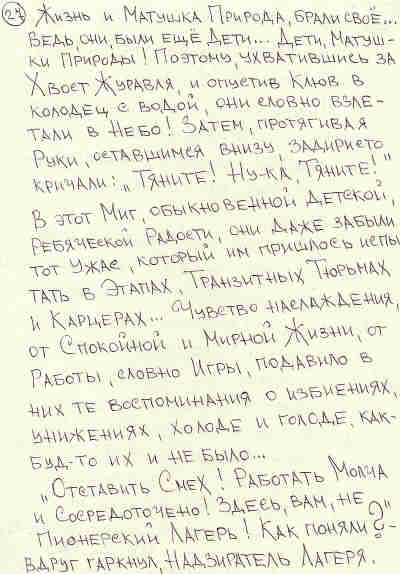 27 Жизнь и Матушка Природа, брали своё...
Ведь, они, были ещё Дети... Дети, Матуш-
ки Природы! Поэтому, ухватившись за
Хвост Журавля, и опустив Клюв в
колодец с водой, они словно взле-
тали в Небо! Затем, протягивая
Руки, оставшимся внизу, задиристо
кричали: „Тяните! Ну-ка, Тяните!"
В этот Миг, обыкновенной Детской,
Ребяческой Радости, они даже забыли
тот Ужас, который им пришлось испы
тать в Этапах, Транзитных Тюрьмах
и Карцерах... Чувство наслаждения,
от Спокойной и Мирной Жизни, от
Работы, словно Игры, подавило в
них те воспоминания о избиениях,
унижениях, холоде и голоде, как-
буд-то их и не было...
„Отставить Смех! Работать Молча
и Сосредоточено! Здесь, вам, не
Пионерский Лагерь! Как поняли?"
Вдруг гаркнул, Надзиратель Лагеря.